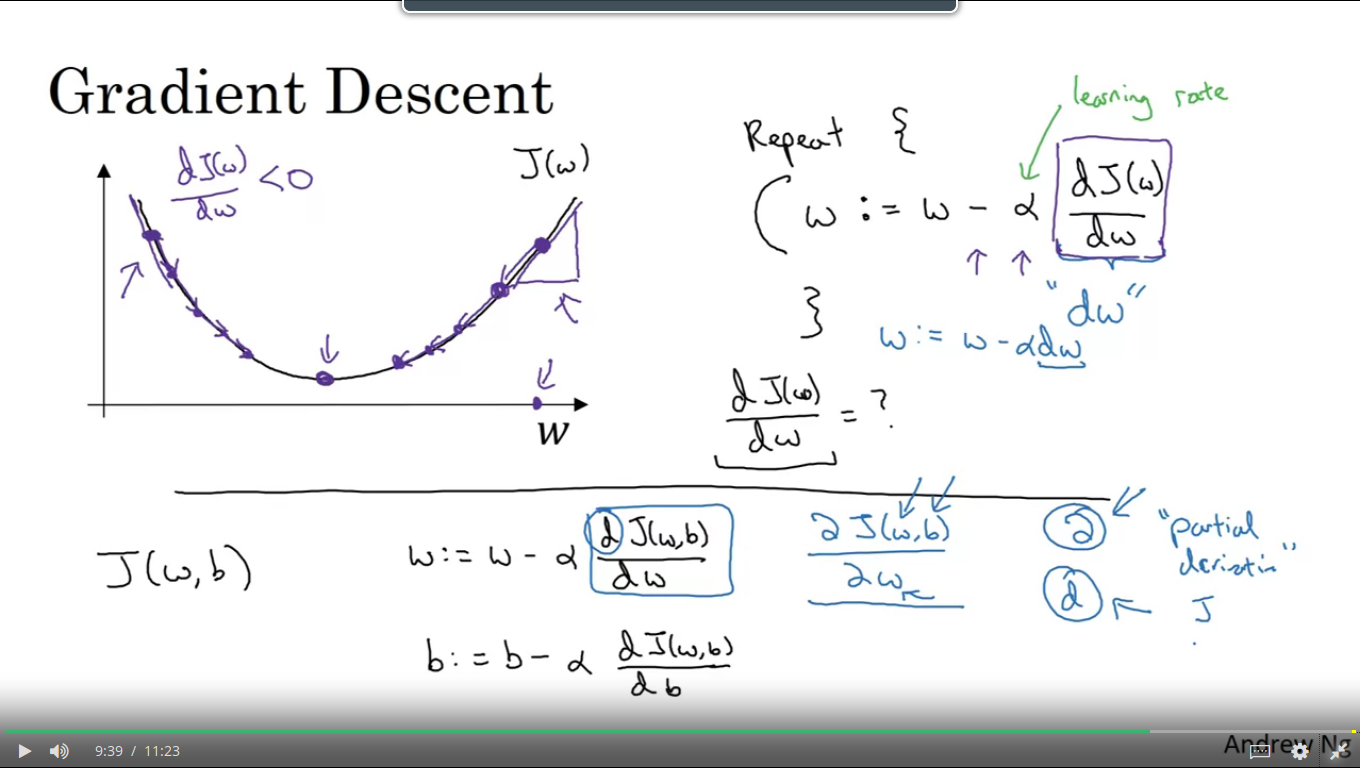 Gradient Descent
dJ(w)/dw < 0
J(w)
w
learning rate
Repeat {
w := w - α dJ(w)/dw
"dw"
}
w := w - α dw
dJ(w)/dw = ?
J(w,b)
w := w - α dJ(w,b)/dw
∂J(w,b)/∂w
∂
"partial
d
J
b := b - α dJ(w,b)/db
9:39 / 11:23
Andrew Ng